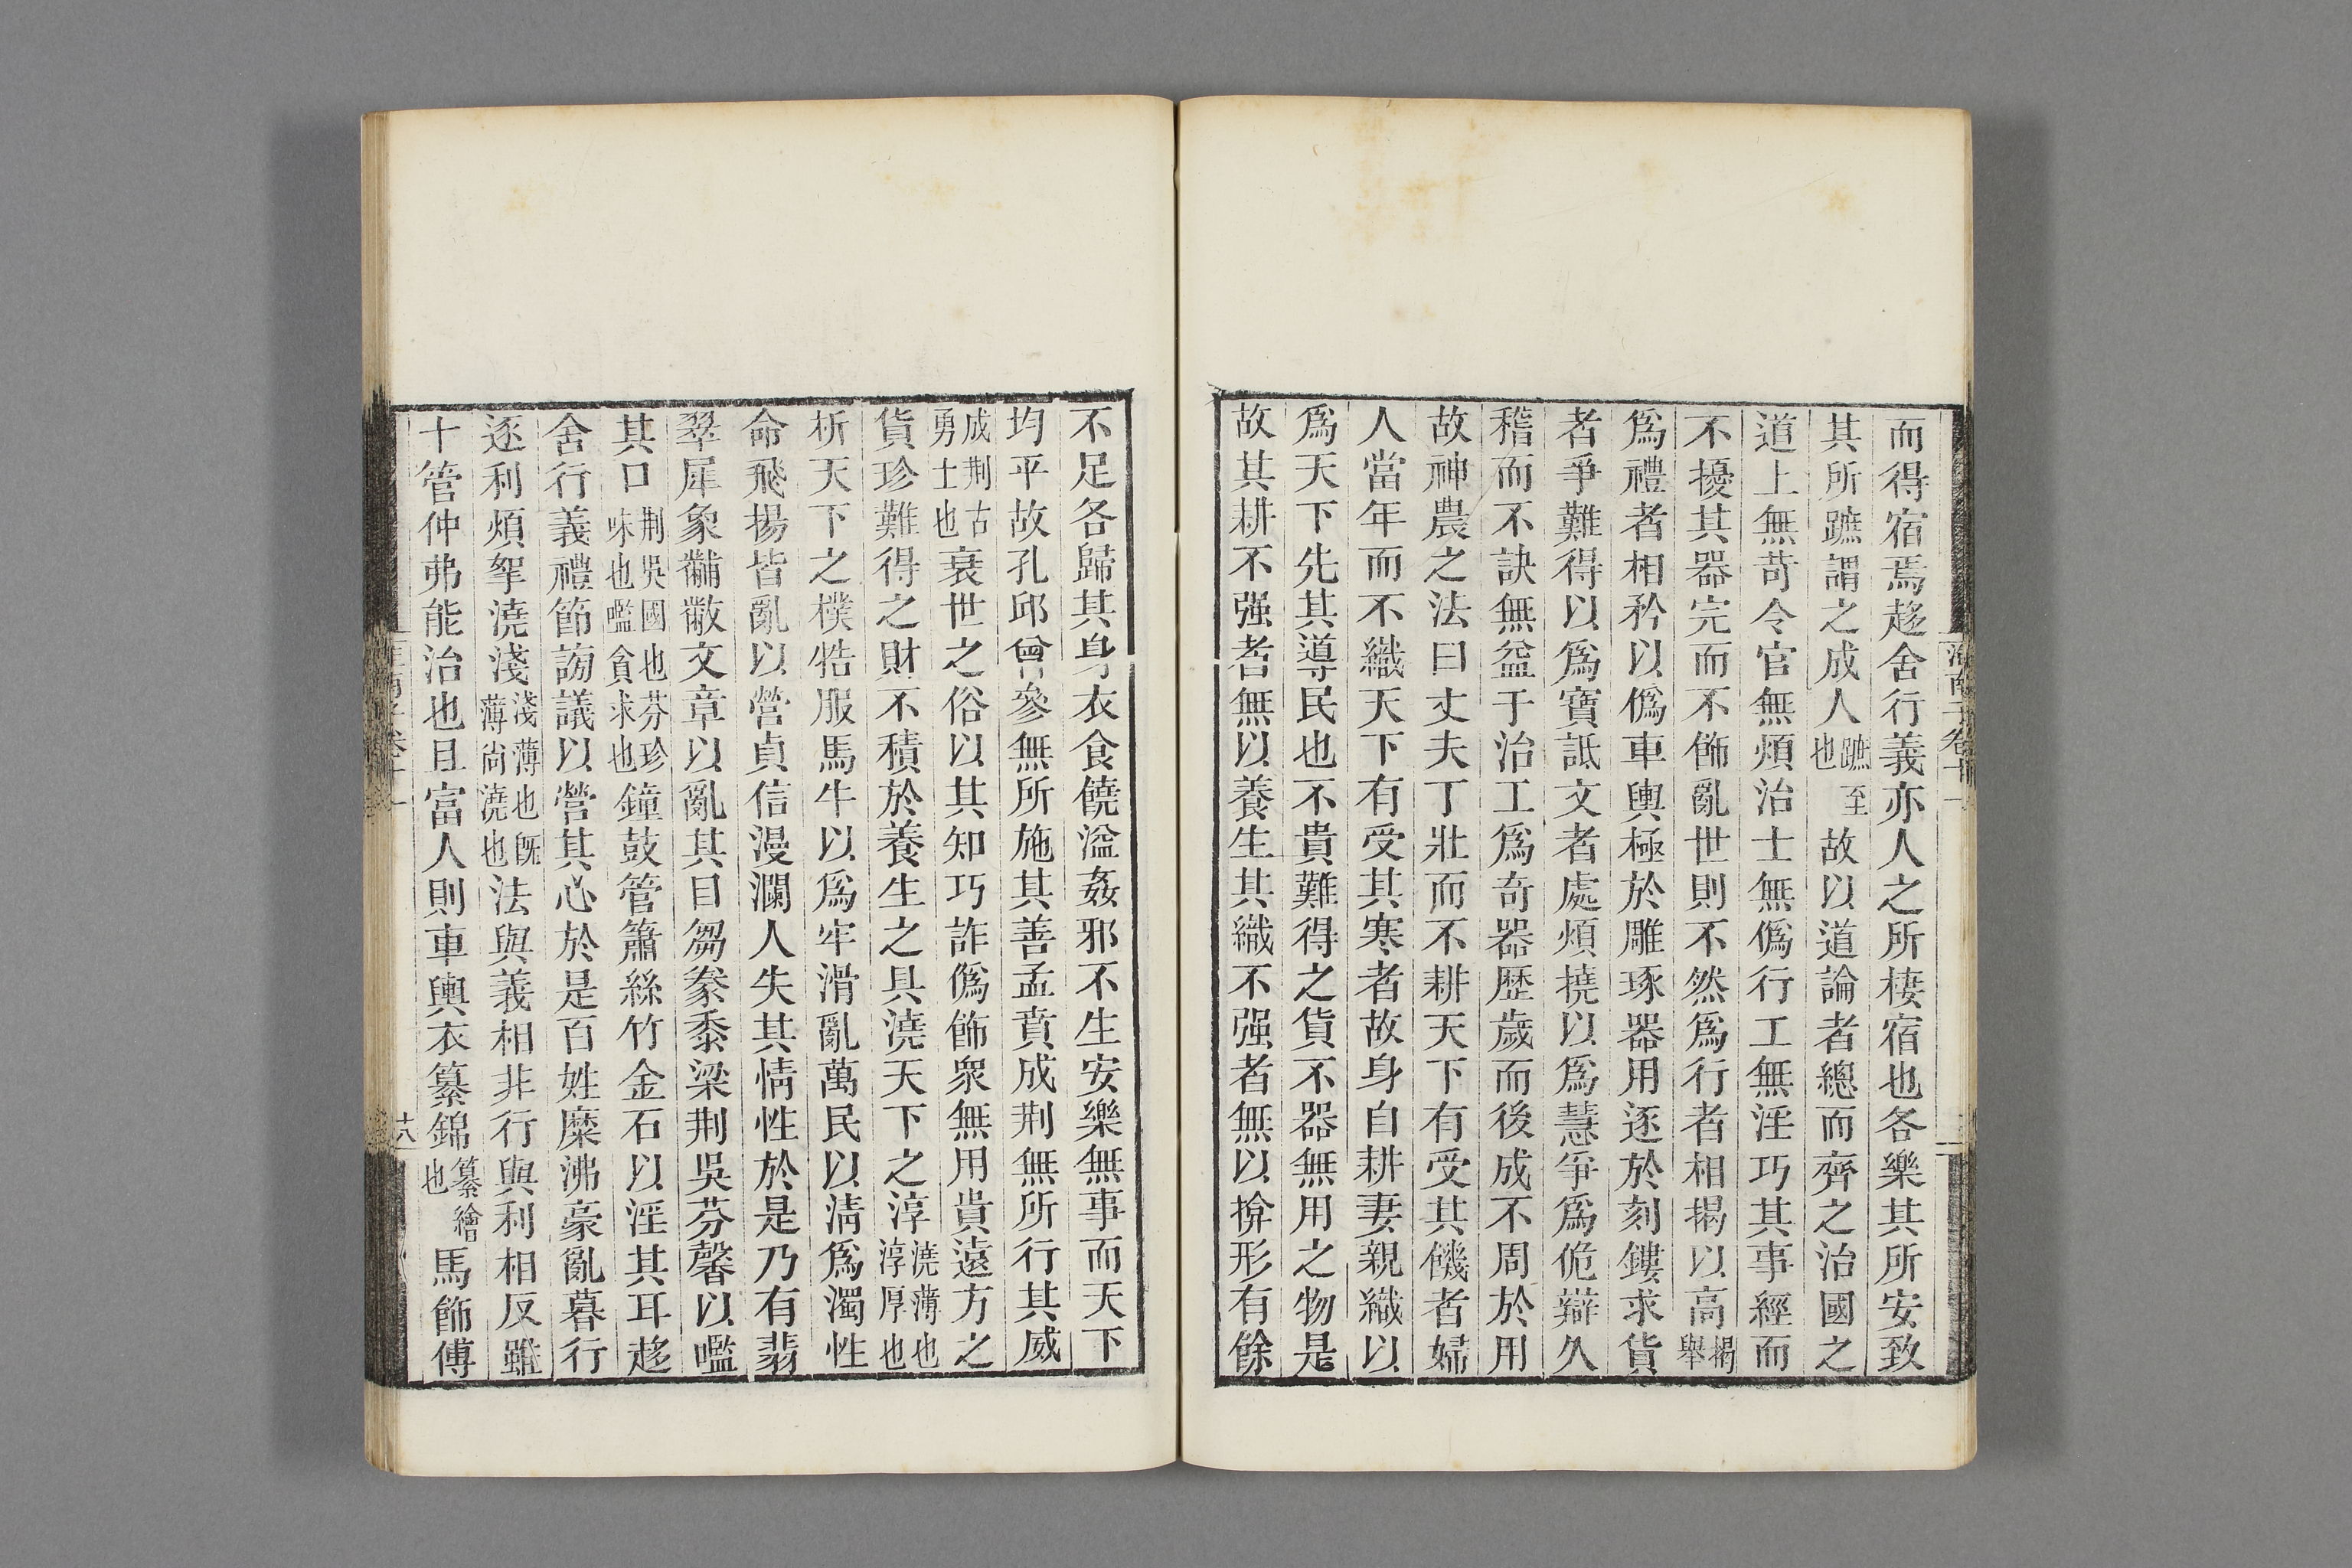 而得宿焉趍舍行義亦人之所棲宿也各樂其所安致
其所蹠謂之成人蹠至也故以道論者總而齊之治國之
道上無苛令官無煩治士無僞行工無淫巧其事經而
不擾其器完而不飾亂世則不然爲行者相揭以高揭舉
爲禮者相矜以僞車輿極於雕琢器用逐於刻鏤求貨
者爭難得以爲寶詆文者處煩撓以爲慧爭爲佹辯久
稽而不訣無益于治工爲奇器歷歲而後成不周於用
故神農之法曰丈夫丁壯而不耕天下有受其饑者婦
人當年而不織天下有受其寒者故身自耕妻親織以
爲天下先其導民也不貴難得之貨不器無用之物是
故其耕不强者無以養生其織不强者無以揜形有餘
不足各歸其身衣食饒溢姦邪不生安樂無事而天下
均平故孔邱曾參無所施其善孟賁成荆無所行其威
成荆古勇士也衰世之俗以其知巧詐僞飾眾無用貴遠方之
貨珍難得之財不積於養生之具澆天下之淳澆薄也淳厚也
析天下之樸牿服馬牛以爲牢滑亂萬民以淸爲濁性
命飛揚皆亂以營貞信漫瀾人失其情性於是乃有翡
翠犀象黼黻文章以亂其目芻豢黍梁荆吳芬馨以嚂
其口荆吳國也芬珍味也嚂貪求也鐘鼓管簫絲竹金石以淫其耳趍
舍行義禮節謗議以營其心於是百姓糜沸豪亂暮行
逐利煩挐澆淺淺薄也旣薄尚澆也法與義相非行與利相反雖
十管仲弗能治也且富人則車輿衣纂錦纂繪也馬飾傅
淮南子卷十一
十八